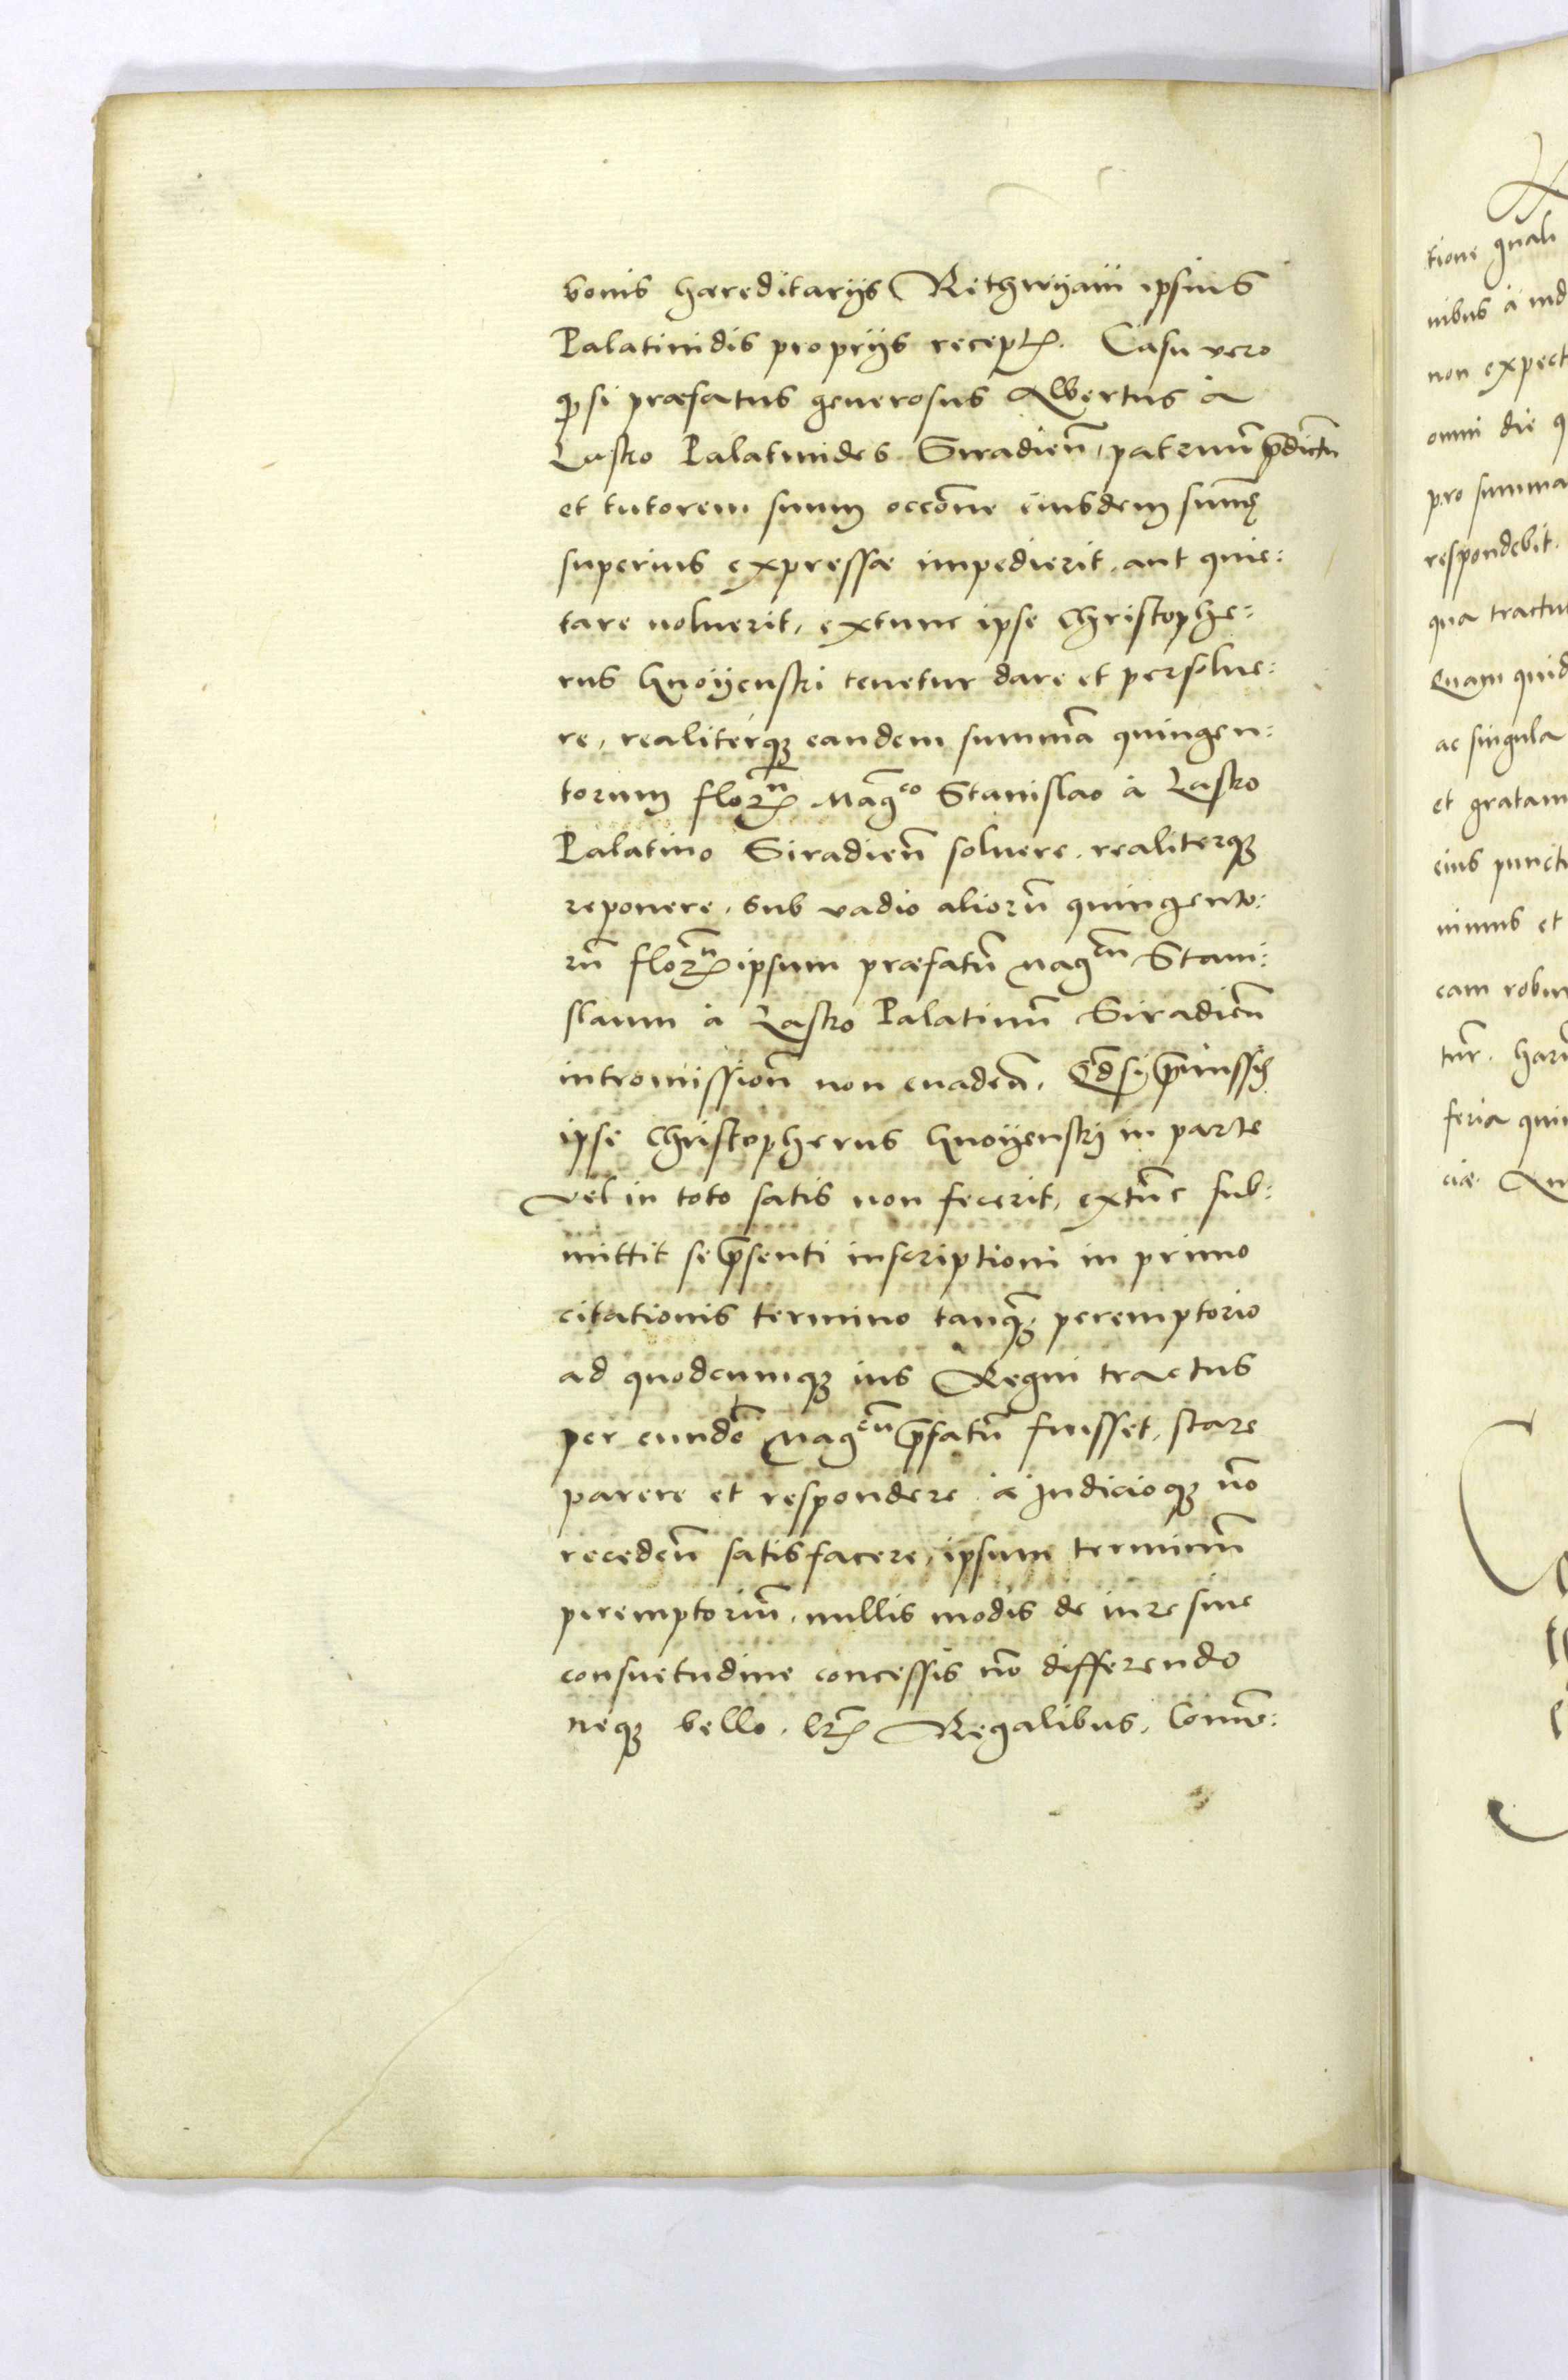 bonis haereditarijs Rithwyani ipsius
Palatinidis proprijs recept. Casu vero
q si praefatus generosus Albertus à
Lasko Palatinides Siradieñ, patruũ p̃dictũ
et tutorem suum occõne eiusdem sum̃ę
superius expressae impedierit, aut quie:
tare noluerit, extunc ipse Christophe:
rus Gnoyenski tenetur dare et persolue:
re, realiterq; eandem summã quingen:
torum florẽn Magco Stanislao à Lasko
Palatino Siradieñ soluere, realiterq;
reponere, sub vadio aliorũ quingento:
rũ florẽn ipsum praefatũ Magcũ Stani:
slaum à Lasko Palatinũ Siradieñ
intromissioñ non euadeñ. Qd̃ si p̃missis
ipse Christopherus Gnoyenskj in parte
vel in toto satis non fecerit, extũc sub:
mittit se p̃senti inscriptioni in primo
citationis termino tanq̃; peremptorio
ad quodcumq; ius Regni tractus
per eundẽ Magcũ p̃fatũ fuisset, stare
parere et respondere, à iudicioq; nõ
recedeñ satisfacere, ipsum terminũ
peremptoriũ, nullis modis de iure siue
consuetudine concessis nõ differendo
neq; bello, lr̃is Regalibus, Com̃o:
tione quali
nibus à iud
non expect
omni die q
pro summa
respondebit.
qua tractu
Quam quid
ac singula
et gratam
eius puncti
nimus et
eam robur
tur. Haru
feria quin
ciae. An